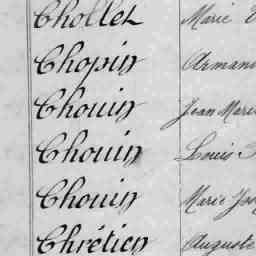 Chollet Marie
Chopin Armand
Chouin Jean Marie
Chouin Louis
Chouin Marie Jos
Chrétien Auguste